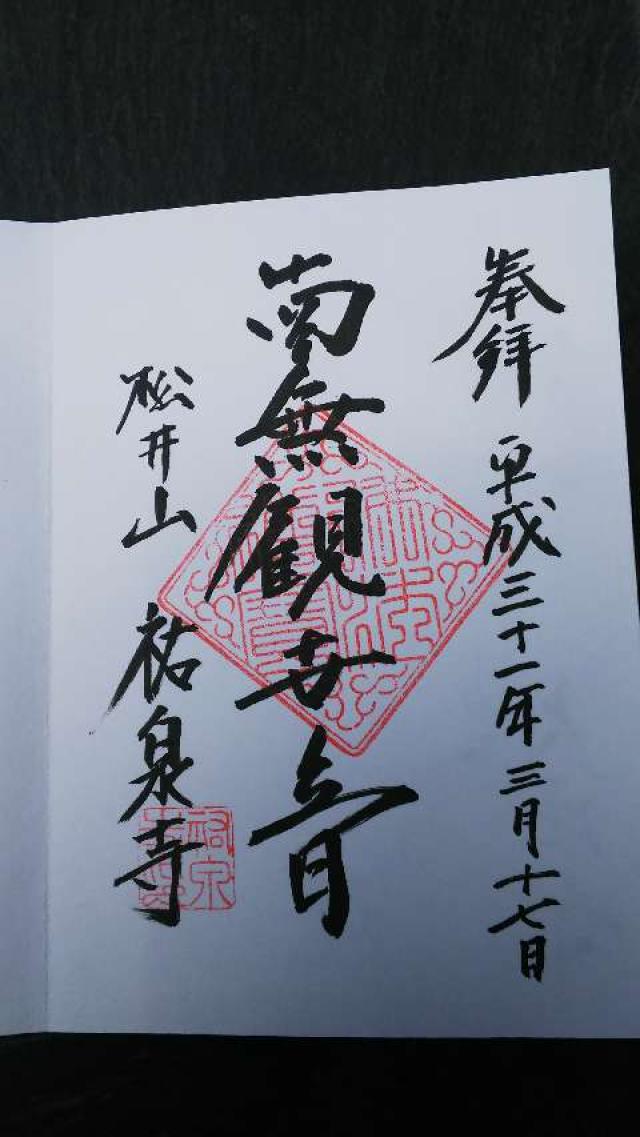 奉拝 平成三十一年三月十七日
南無観世音
松井山 祐泉寺